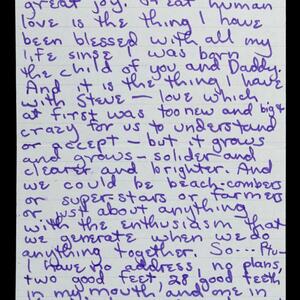 great joy. Great human
love is the thing I have
been blessed with all my
life sinse I was born
the child of you and Daddy.
And it is the thing I have
with Steve — love which
at first was too new and big &
crazy for us to understand
or accept — but it grows
and grows - solider and
clearer and brighter. And
we could be beach-combers
or super-stars or farmers
or just about anything
with the enthusiasm that
we generate when we do
anything together. So...
I have no address, no plans,
two good feet, 28 good teeth,
in my mouth and one in